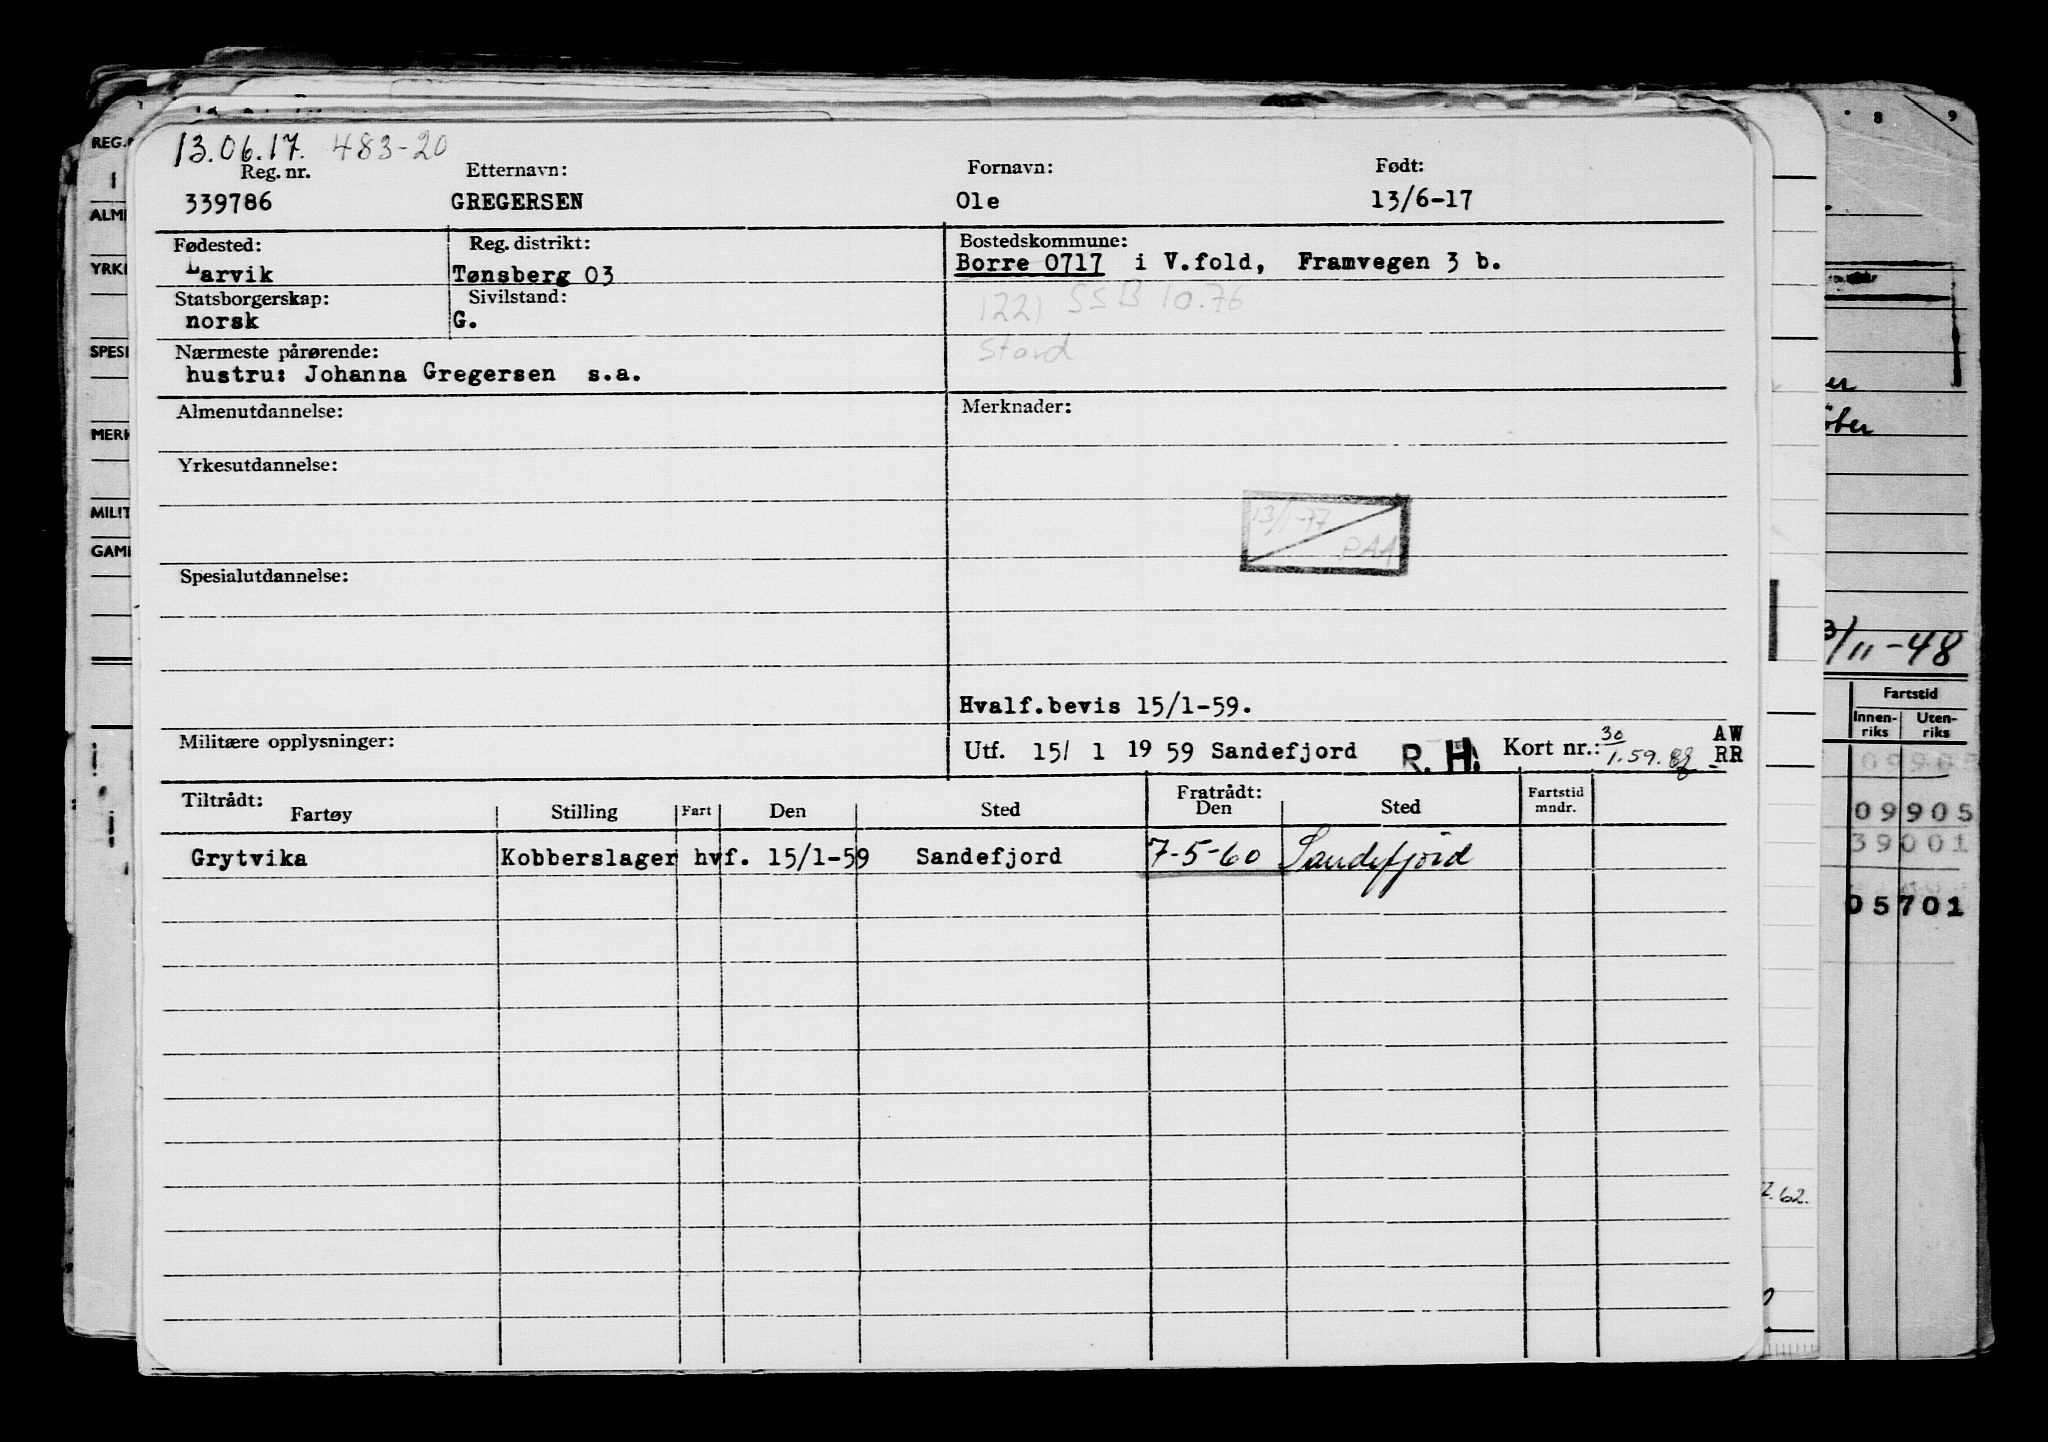 13.06.17. 483-20
Reg. nr. Etternavn: Fornavn: Født:
339786 GREGERSEN Ole 13/6-17
Fødested: Reg. distrikt: Bostedskommune:
Larvik Tønsberg 03 Borre 0717 i V.fold, Framvegen 3 b.
Statsborgerskap: Sivilstand: 1221 SSB 10.76
norsk G.
Nærmeste pårørende: Stord
hustru: Johanna Gregersen s.a.
Almenutdannelse: Merknader:
Yrkesutdannelse:
13/1-77
PAA
Spesialutdannelse:
Hvalf.bevis 15/1-59.
Militære opplysninger: Utf. 15/ 1 19 59 Sandefjord R. H. Kort nr.: 30/1.59. AW
RR
Tiltrådt: Fratrådt: Fartstid
Fartøy Stilling Fart Den Sted Den Sted mndr.
Grytvika Kobberslager hvf. 15/1-59 Sandefjord 7-5-60 Sandefjord
REG.
ALM
YRK
SPESI
MERK
MILIT
GAM
8 9
/11-48
Fartstid
Innen-riks Uten-riks
09905
39001
05701
.62.